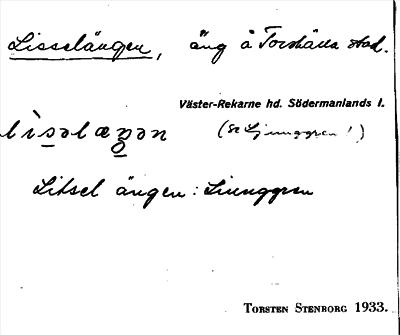 Lisselängen, äng å Torshälla stad.
Väster-Rekarne hd. Södermanlands l.
lisəlæŋən (Se Ljunggren!)
Litsel ängen: Liunggren
TORSTEN STENBORG 1933.